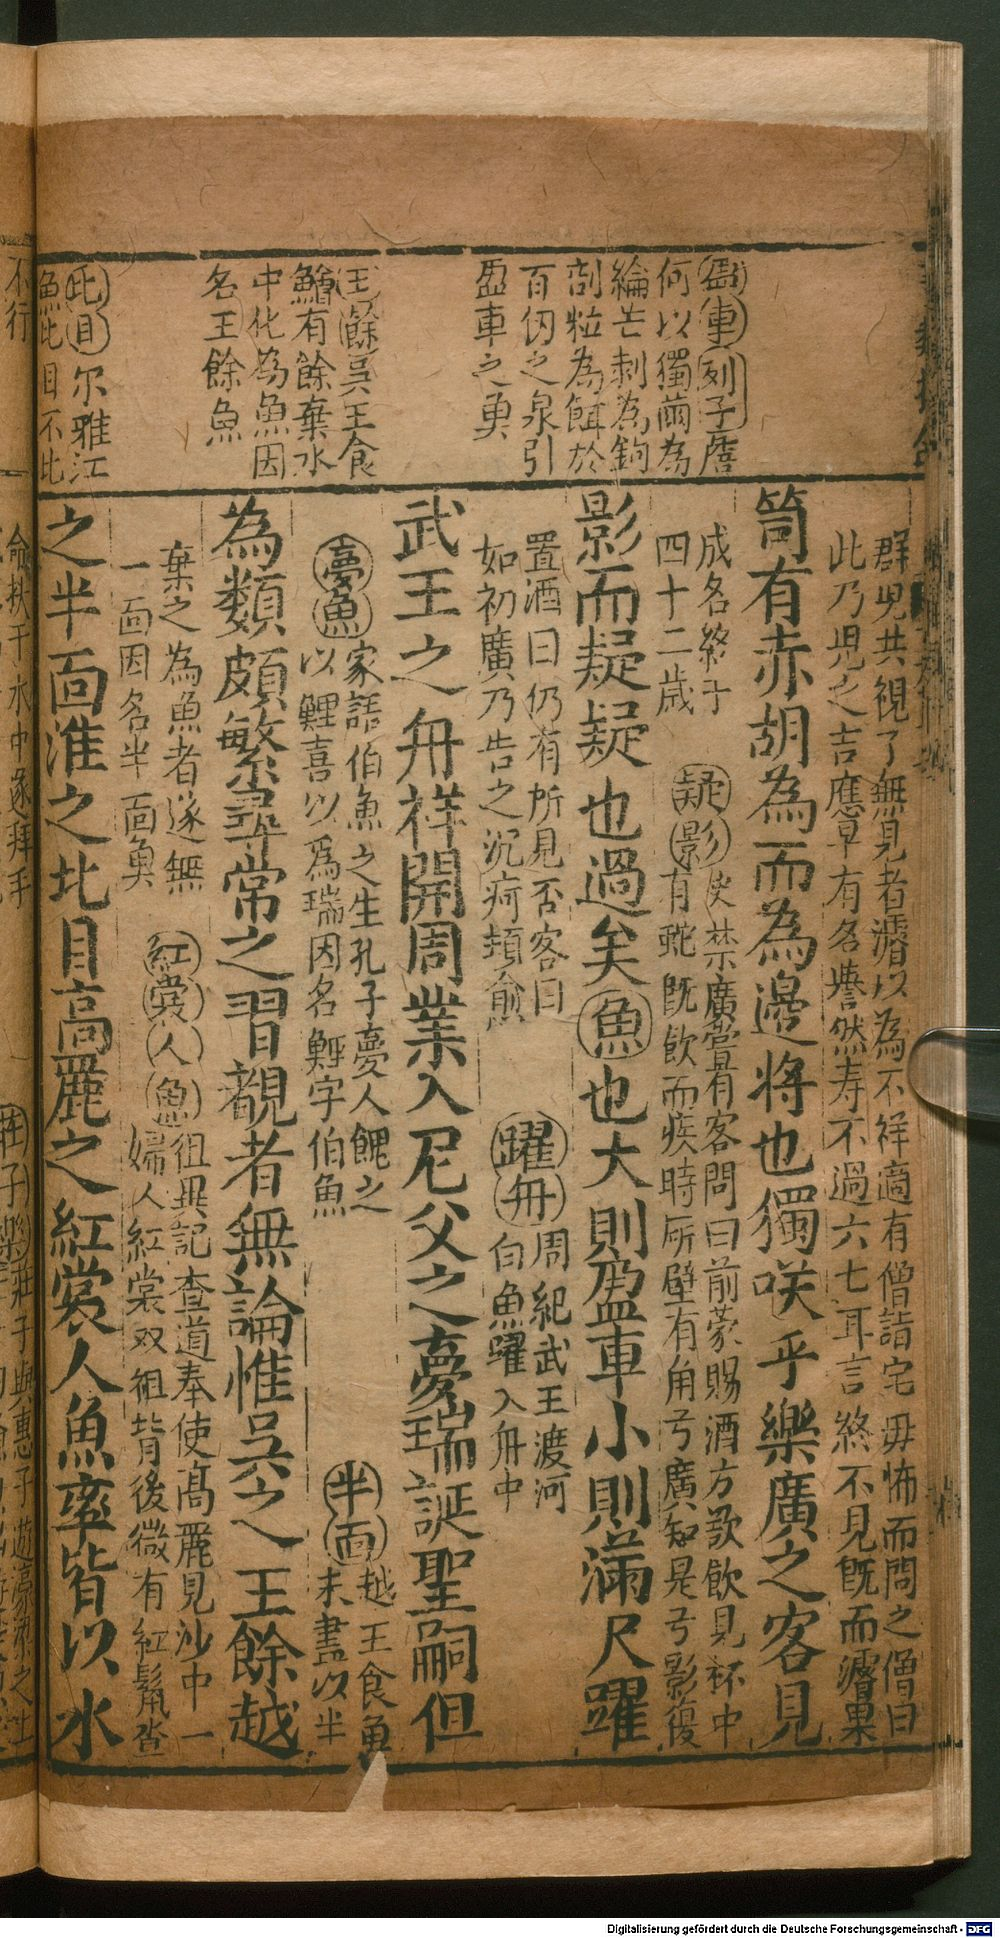 盈車列子詹
何以獨繭為
綸芒刺為鉤
剖粒為餌於
百仞之泉引
盈車之魚
王餘吳王食
鱠有餘棄水
中化為魚因
名王餘魚
比目尔雅江
魚比目不比
群児共視了無見者濬以為不祥適有僧詣宅毋怖而問之僧曰
此乃児之吉應早有名譽然寿不過六七耳言終不見既而濬果
笥有赤胡為而為邊將也獨咲乎樂廣之客見
成名終于
四十二歳
疑影史禁廣嘗有客問曰前蒙賜酒方欲飲見杯中
有蛇既飲而疾時所壁有角弓廣知是弓影復
影而疑疑也過矣魚也大則盈車小則滿尺躍
置酒曰仍有所見否客曰
如初廣乃告之沉疴頓愈
躍舟周紀武王渡河
白魚躍入舟中
武王之舟祥開周業入尼父之夢瑞誕聖嗣但
夢魚家語伯魚之生孔子夢人餽之
以鯉喜以為瑞因名鯉字伯魚
半面越王食魚
未盡以半
為類頗繁尋常之習覩者無論惟吳之王餘越
棄之為魚者遂無
一面因名半面魚
紅裳人魚徂異記查道奉使高麗見沙中一
婦人紅裳双袒背後微有紅鬣查
之半面淮之比目高麗之紅裳人魚率皆以水
不行
命扶于水中遂拜手
莊子樂莊子與惠子遊濠梁之上
Digitalisierung gefördert durch die Deutsche Forschungsgemeinschaft - DFG